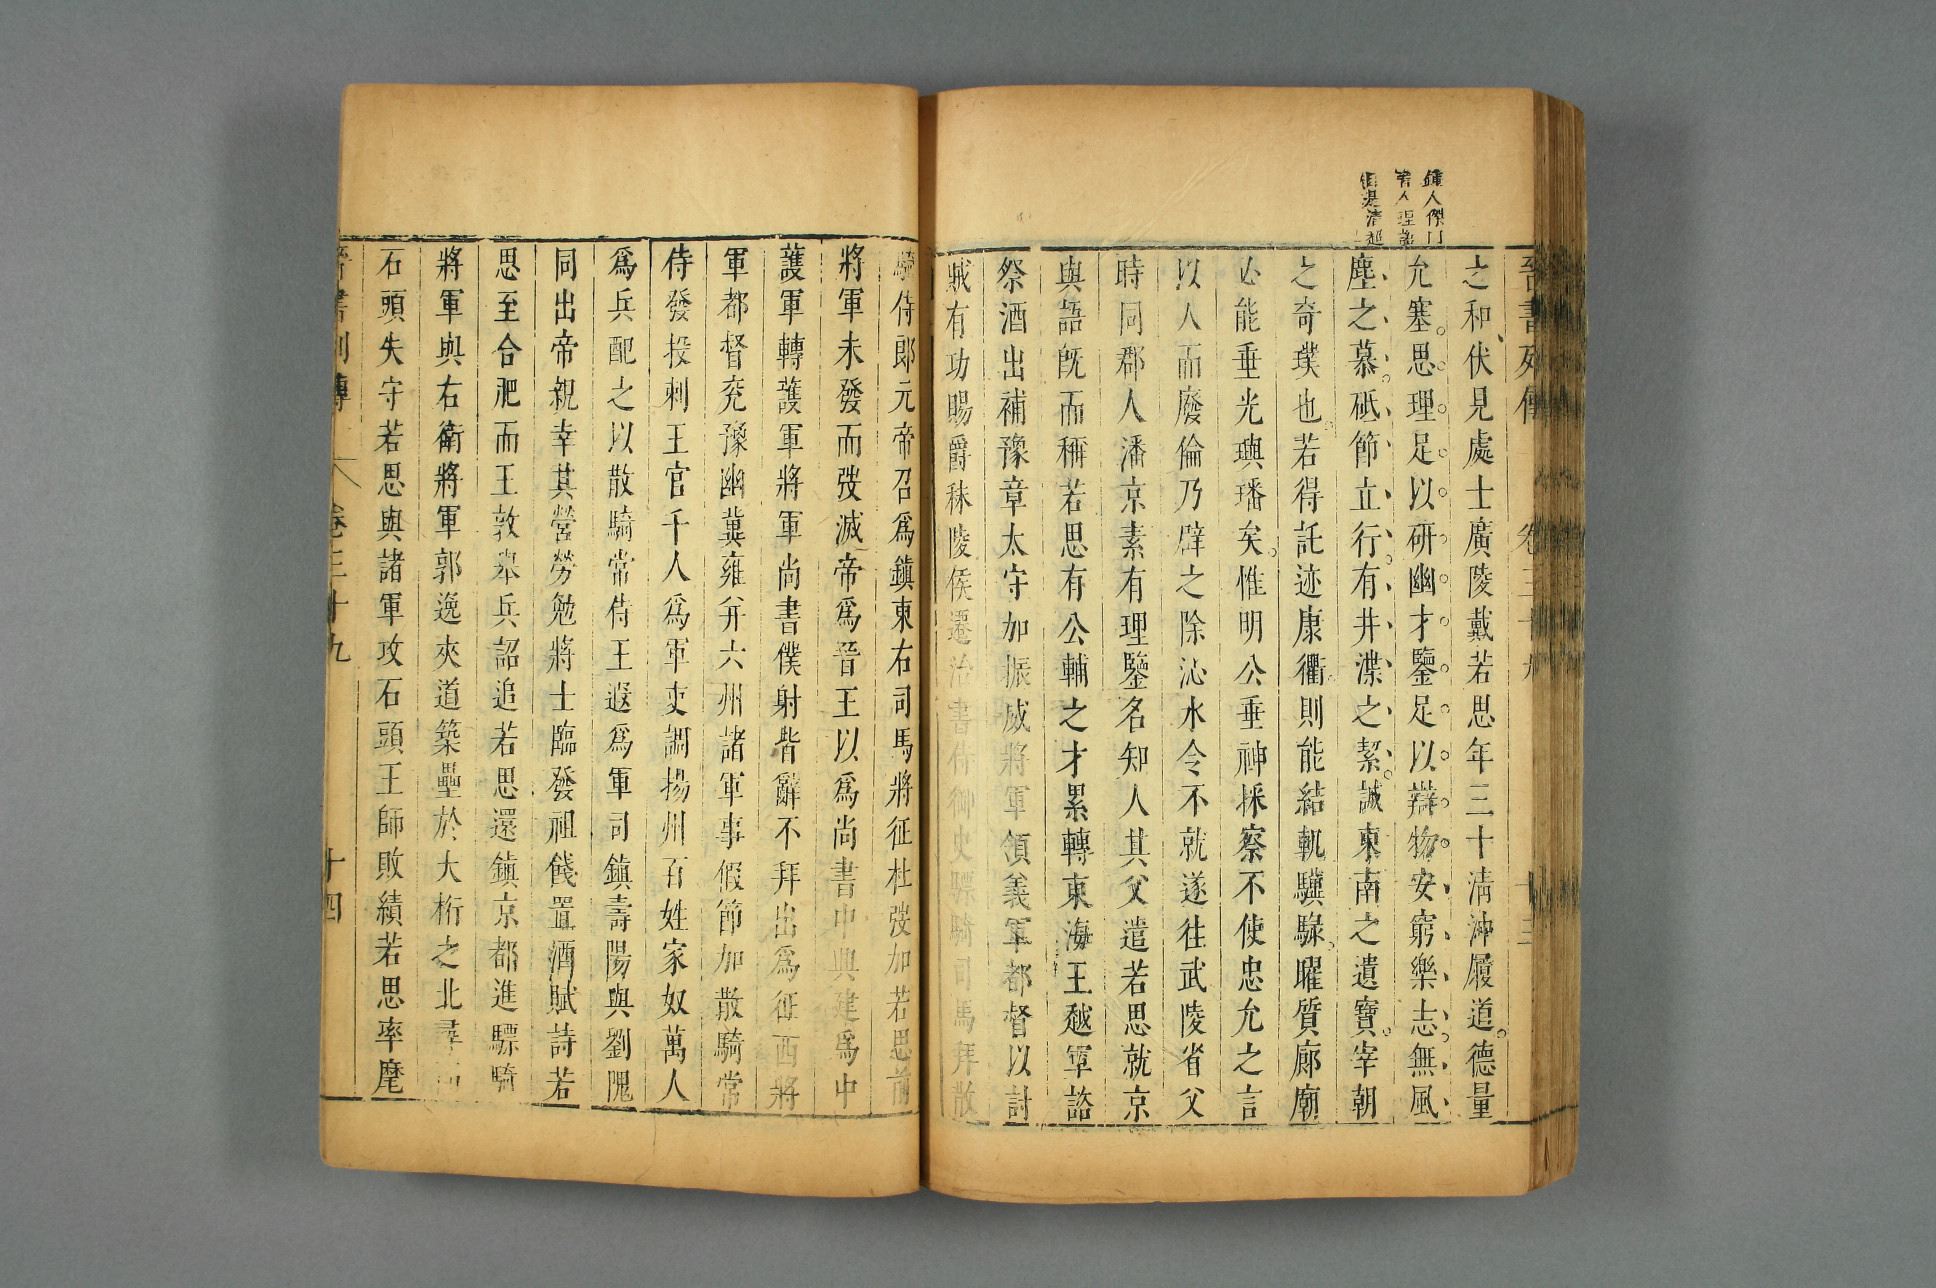 鍾人傑
晉書列傳 卷三十九 十三
之和伏見處士廣陵戴若思年三十清沖履道德量
允塞思理足以研幽才鑒足以辯物安窮樂志無風
塵之慕砥節立行有井渫之潔誠東南之遺寶宰朝
之奇璞也若得託迹康衢則能結軌驥騄曜質廊廟
必能垂光璵璠矣惟明公垂神採察不使忠允之言
以人而廢倫乃辟之除沁水令不就遂往武陵省父
時同郡人潘京素有理鑒名知人其父遣若思就京
與語旣而稱若思有公輔之才累轉東海王越軍諮
祭酒出補豫章太守加振威將軍領義軍都督以討
賊有功賜爵秣陵侯遷治書侍御史驃騎司馬拜散
騎侍郎元帝召爲鎮東右司馬將征杜弢加若思前
將軍未發而弢滅帝爲晉王以爲尚書中興建爲中
護軍轉護軍將軍尚書僕射皆辭不拜出爲征西將
軍都督兗豫幽冀雍并六州諸軍事假節加散騎常
侍發投刺王官千人爲軍吏調揚州百姓家奴萬人
爲兵配之以散騎常侍王遐爲軍司鎮壽陽與劉隗
同出帝親幸其營勞勉將士臨發祖餞置酒賦詩若
思至合肥而王敦舉兵詔追若思還鎮京都進驃騎
將軍與右衛將軍郭逸夾道築壘於大桁之北尋而
石頭失守若思與諸軍攻石頭王師敗績若思率麾
晉書列傳 卷三十九 十四